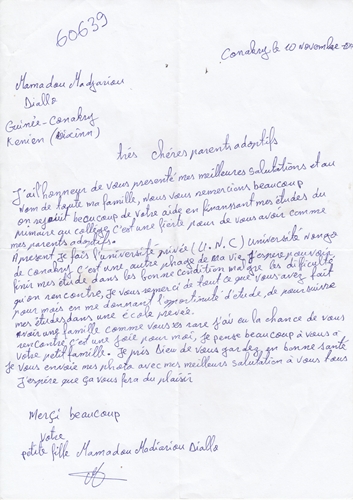 60639
Conakry le 10 Novembre
Mamadou Madjariou
Diallo
Guinée-Conakry
Kenien (Dixinn)
très chères parent adoptifs
J'ai l'honneur de vous presenté mes meilleures salutations et au
nom de toute ma famille, Nous vous remercions beaucoup
on rejouit beaucoup de votre aide en finançant mes études du
primaire au collège c'est une fierté pour de vous avoir comme
mes parents adoptifs.
Apresent je fais l'université privée (U.N.C) Université Nongo
de conakry c'est une autre phase de ma vie J'espère pouvoir
finir mes étude dans les bonne condition malgré les dificultés
qu'on rencontre, Je vous remercie de tout ce que vous avez fait
pour mais en me donnant l'oportinuté d'étude, de poursuivre
mes études dans une école privée.
avoir une famille comme vous ses rare j'ai eu la chance de vous
rencontré c'est une joie pour moi, je pense beaucoup à vous a
votre petit famille. Je près Dieu de vous gardez en bonne santé
Je vous envoie mes photo avec mes meilleurs salutation à vous tous
J'espère que ça vous fera du plaisir
Merçi beaucoup
Votre
petite fille Mamadou Madiariou Diallo